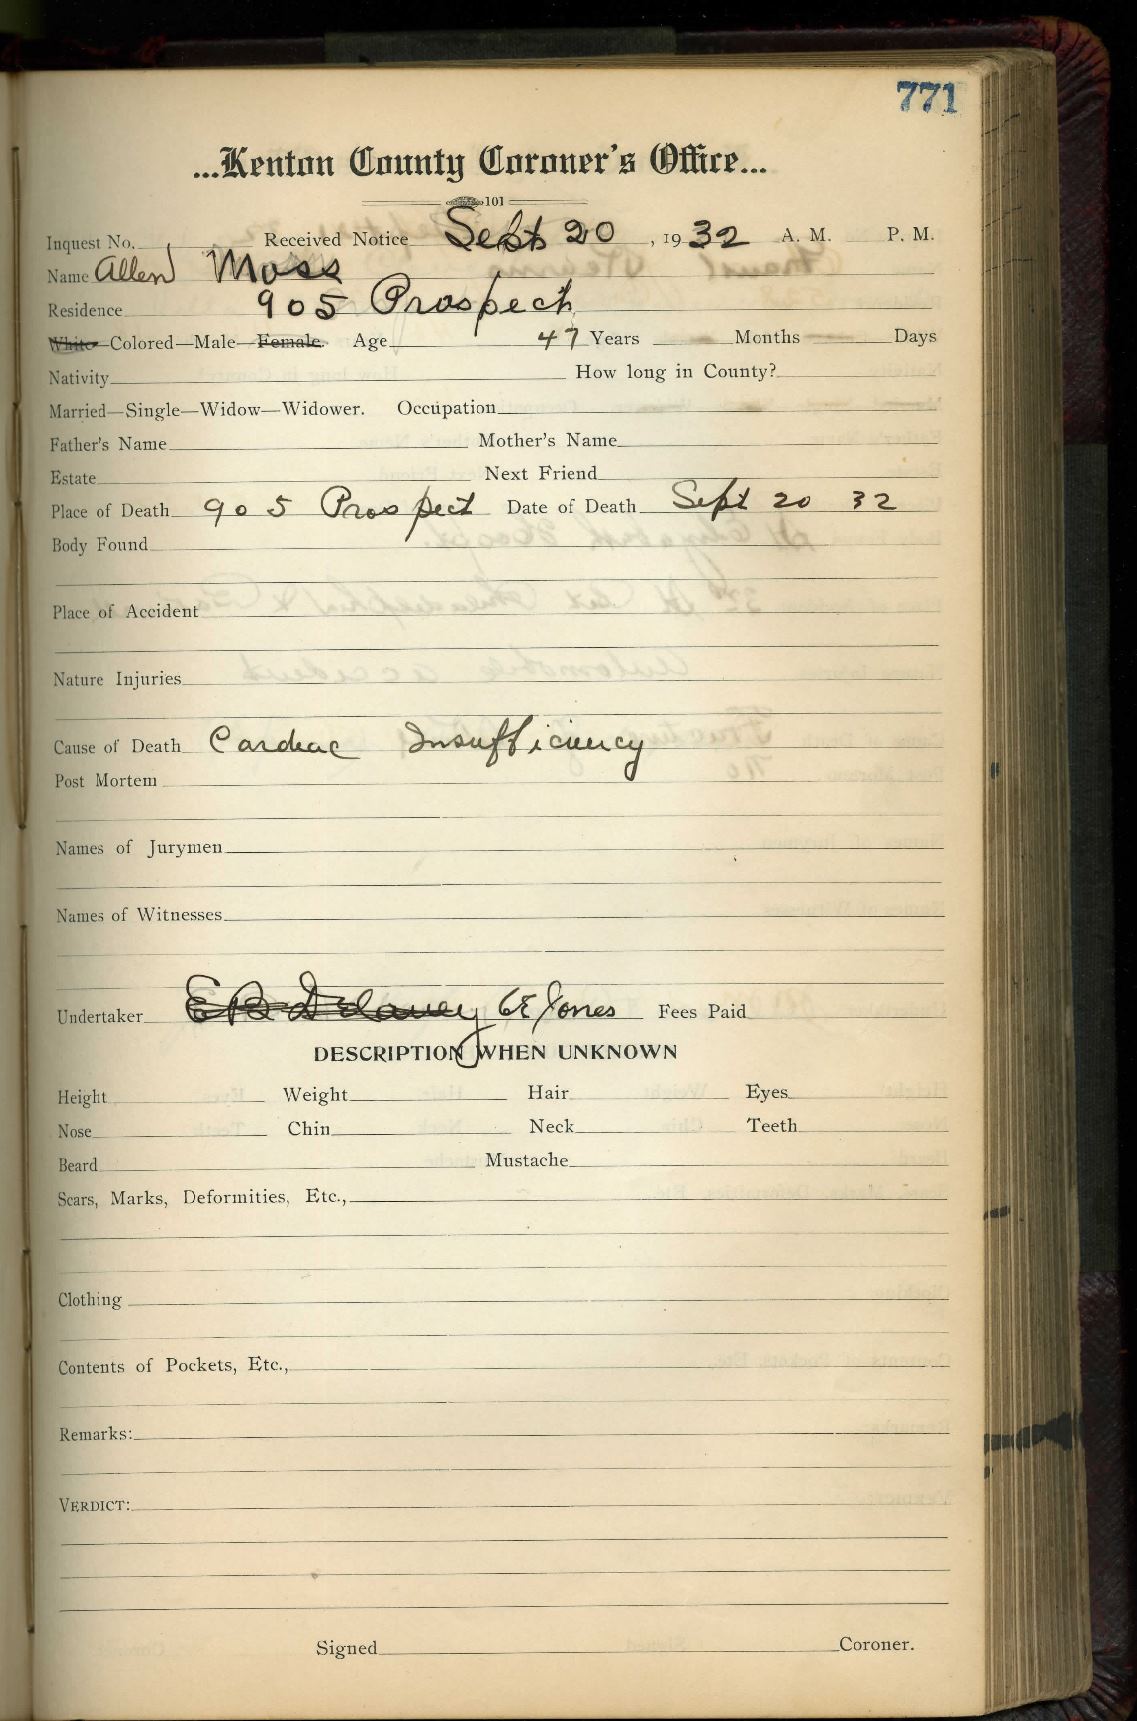 771
...Kenton County Coroner's Office...
101
Inquest No. Received Notice Sept 20, 1932 A. M. P. M.
Name Allen Moss
Residence 905 Prospect
White—Colored—Male—Female. Age 47 Years Months Days
Nativity How long in County?
Married—Single—Widow—Widower. Occupation
Father's Name Mother's Name
Estate Next Friend
Place of Death 905 Prospect Date of Death Sept 20 32
Body Found
Place of Accident
Nature Injuries
Cause of Death Cardiac Insufficiency
Post Mortem
Names of Jurymen
Names of Witnesses
Undertaker E B Delaney CE Jones Fees Paid
DESCRIPTION WHEN UNKNOWN
Height Weight Hair Eyes
Nose Chin Neck Teeth
Beard Mustache
Scars, Marks, Deformities, Etc.,
Clothing
Contents of Pockets, Etc.,
Remarks:
VERDICT:
Signed Coroner.